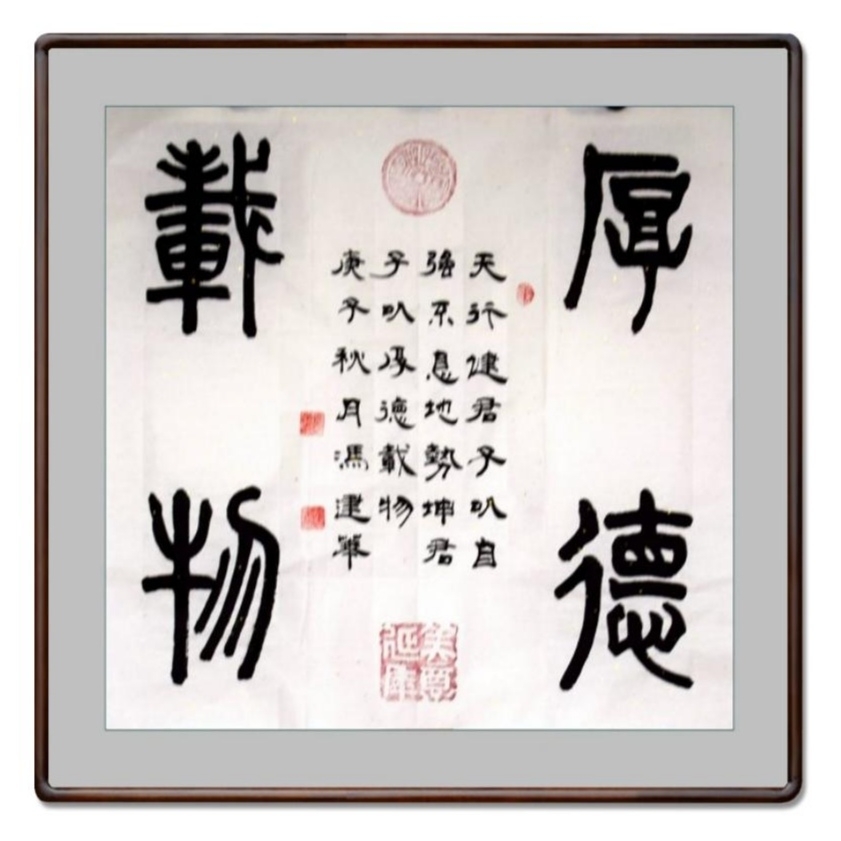 厚德
天行健君子以自
強不息地勢坤君
子以厚德載物
庚子秋月馮建華
載物